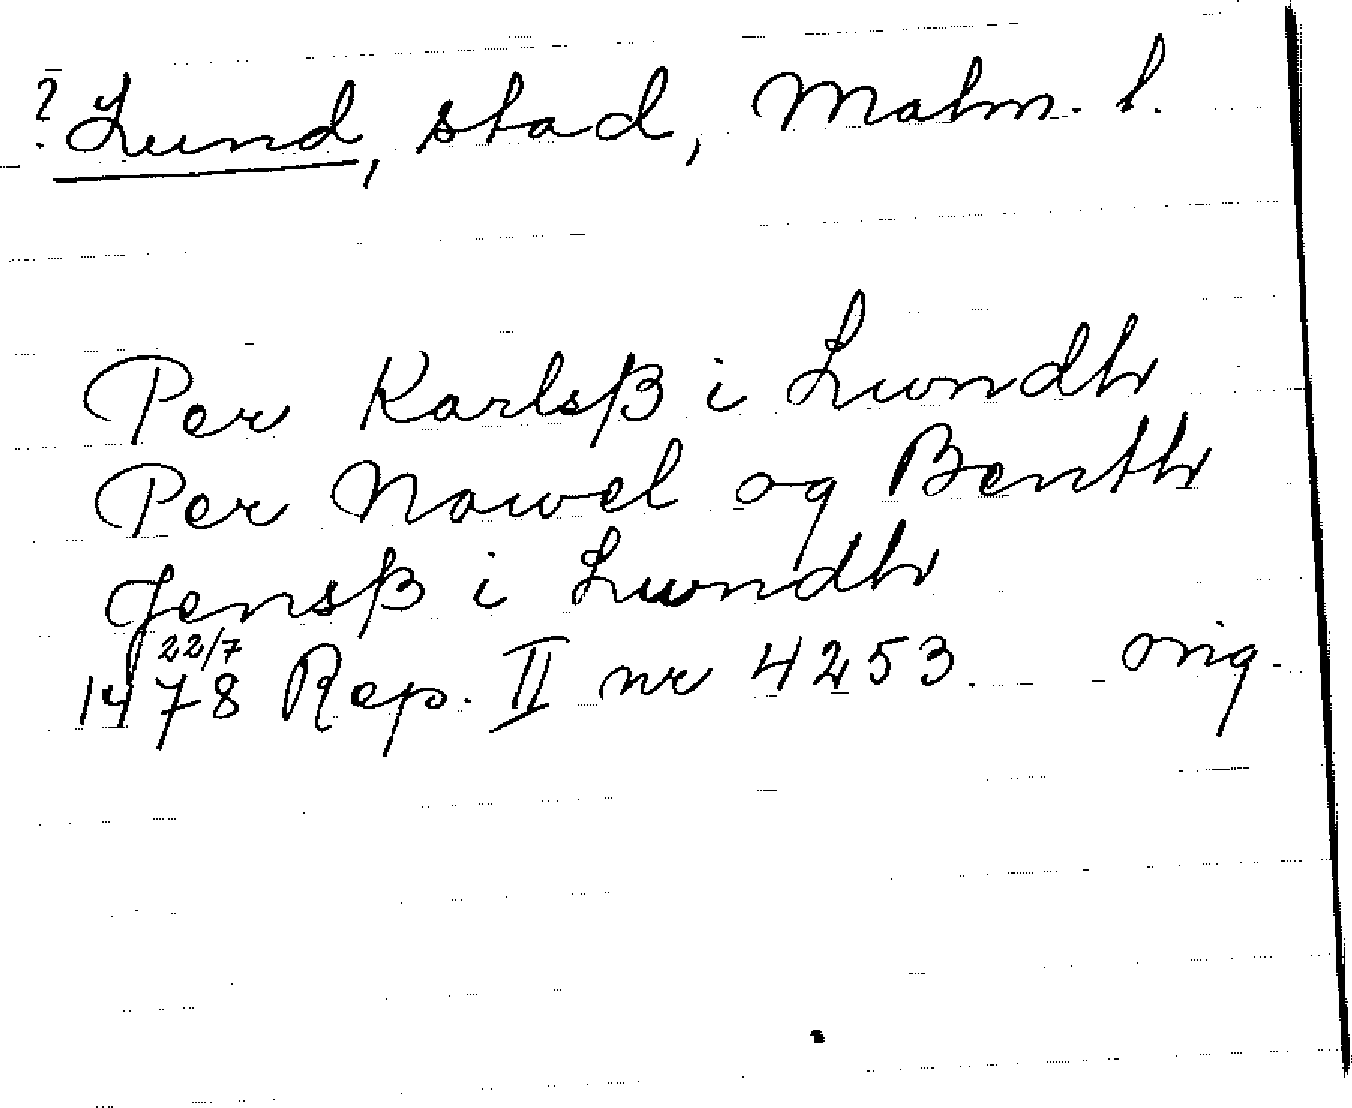 ? Lund, stad, Malm. l.
Per Karlsß i Lwndh
Per Nawel og Benth
Jensß i Lwndh
22/7
1478 Rep. II nr 4253. orig.